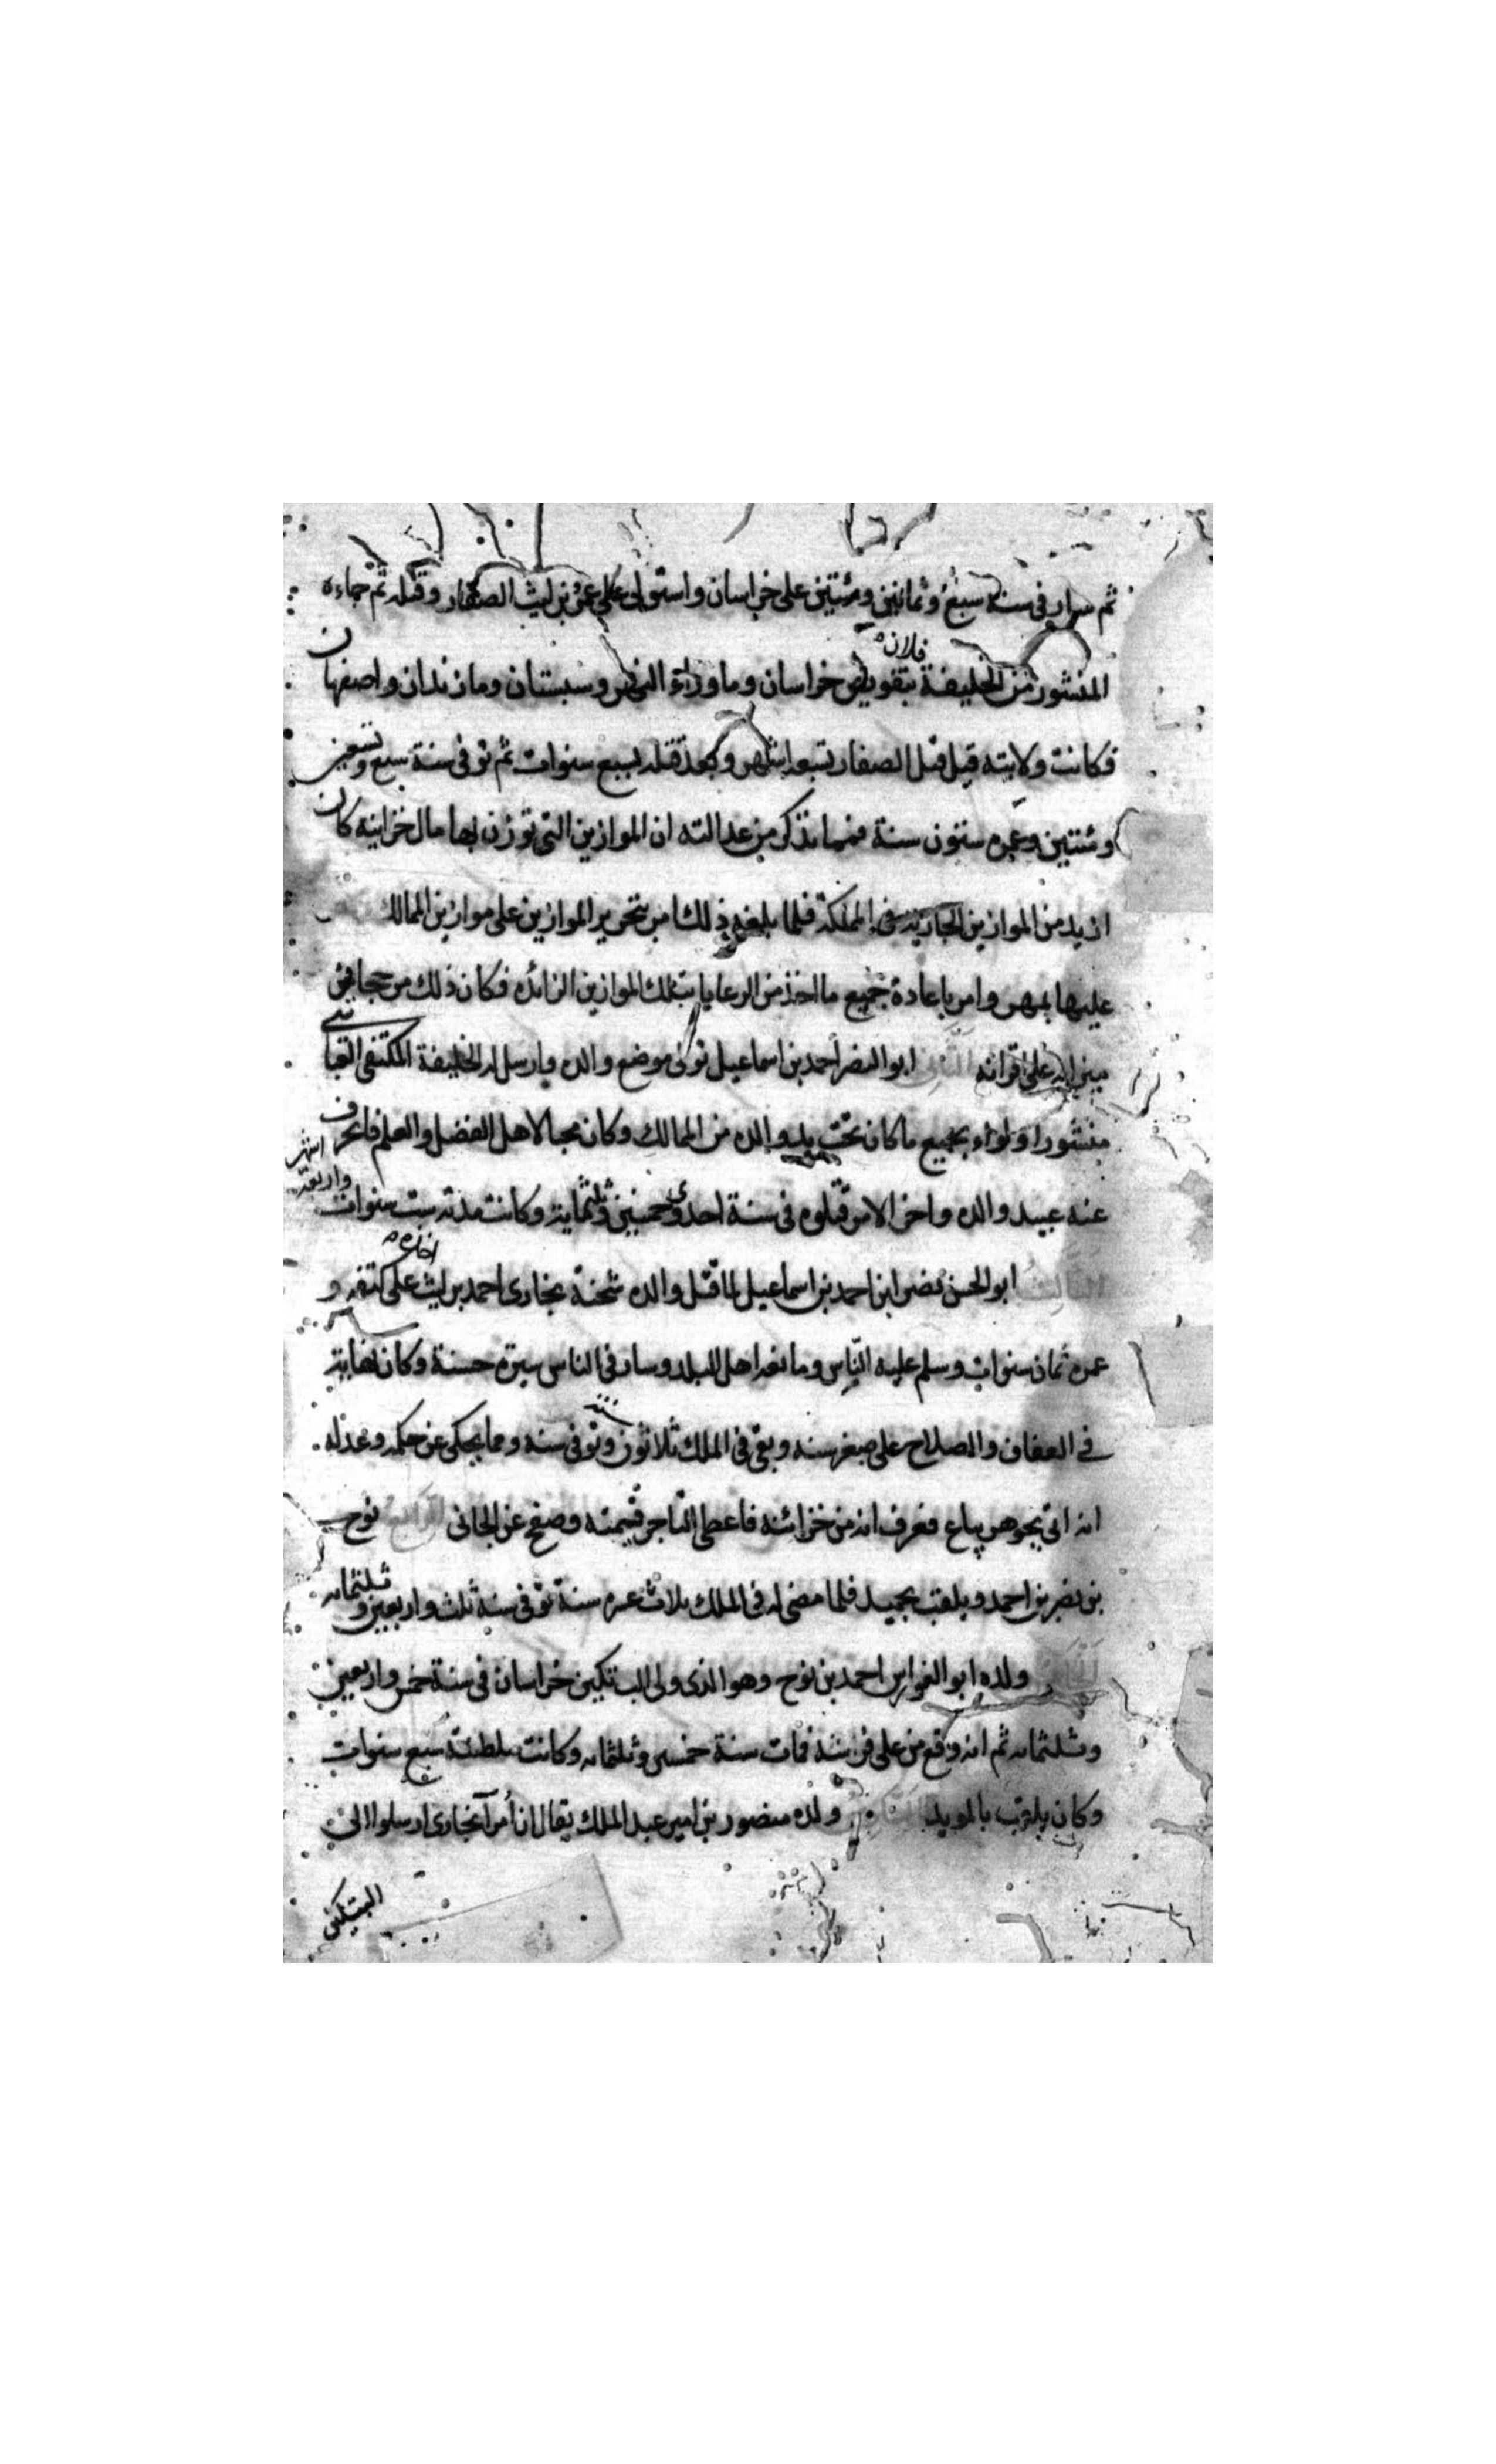 ثم سار فى سنة سبع وثمانين ومئتين على خراسان واستولى على عمرو بن ليث الصفار وقتله ثم جاءه
فلان
المنشور من الخليفة بتفويض خراسان وما وراء النهر وسبستان ومازندان واصفهان
فكانت ولايته قبل قتل الصفار تسعة اشهر وبعد قتله بسبع سنوات ثم توفى سنة سبع وتسعين
ومئتين وعمره ستون سنة فمما تذكر من عدالته ان الموازين التى توزن بها مال خزاينه كان
ازيد من الموازين الجارية فى المملكة فلما بلغه ذلك امر بتحرير الموازين على موازين الممالك
عليها بمهر وامر باعادة جميع ما اخذ من الرعايا بتلك الموازين الزائده فكان ذلك من
على اقرانه الثانى ابو النصر احمد بن اسماعيل تولى موضع والده وارسل له الخليفة المكتفى
منشورا ولواء بجميع ما كان تحت يد والده من الممالك وكان محبا لاهل الفضل والعلم فانحرف
عنه عبيد والده واخر الامر قتلوه فى سنة احدى وخمسين وثلثماية وكانت مدته ست سنوات واربعة اشهر
الثالث ابو الحسن نصر ابن احمد بن اسماعيل لما قتل والده شحنة بخارى احمد بن ليث على كتفه و
عمره ثمان سنوات وسلم عليه الناس وما نعه اهل البلد وسار فى الناس سيرة حسنة وكان نهاية
فى العفاف والصلاح على صغر سنه وبقى فى الملك ثلاثون وتوفى سنه ومما يحكى عن حكمه وعدله
انه اتى بجوهر يباع فعرف انه من خزائنه فاعطى التاجر قيمته وصفح عن الجانى الرابع نوح
بن نصر بن احمد ويلقب بحميد فلما مضى له فى الملك ثلاث عشره سنة توفى سنة ثلث واربعين وثلثمايه
ولده ابو الفوارس احمد بن نوح وهو الذى ولى البتكين خراسان فى سنة خمس واربعين
وثلثمايه ثم انه وقع من على فرسه فمات سنة خمسين وثلثمايه وكانت سلطنة سبع سنوات
وكان يلقب بالمويد ولده منصور بن امير عبد الملك يقال ان أمرآ بخارى ارسلوا الى
البتيكين